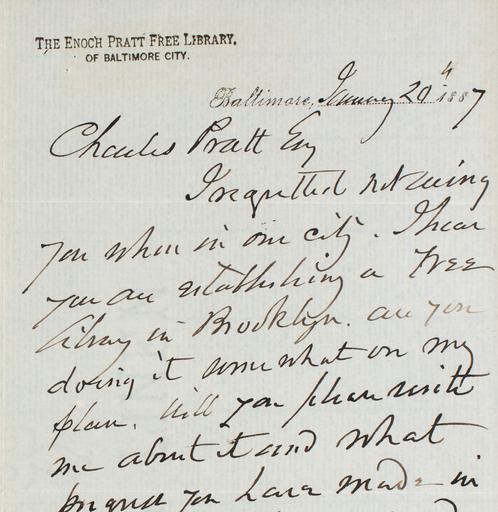 THE ENOCH PRATT FREE LIBRARY,
OF BALTIMORE CITY.
Baltimore, January 20th 1887
Charles Pratt Esq
I regretted not seeing
you when in our city. I hear
you are establishing a Free
Library in Brooklyn. are you
doing it somewhat on my
plan. Will you please write
me about it and what
progress you have made in